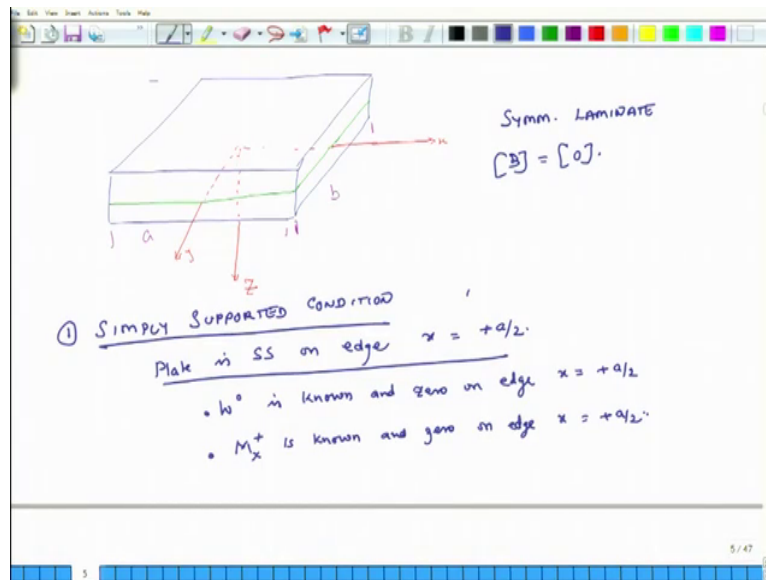 File Edit View Insert Actions Tools Help
B I
SYMM. LAMINATE
[B] = [0].
x
b
a
y
Z
① SIMPLY SUPPORTED CONDITION
Plate is SS on edge x = +a/2.
• W° is known and zero on edge x = +a/2
• M⁺ₓ is known and zero on edge x = +a/2.
5 / 47
5